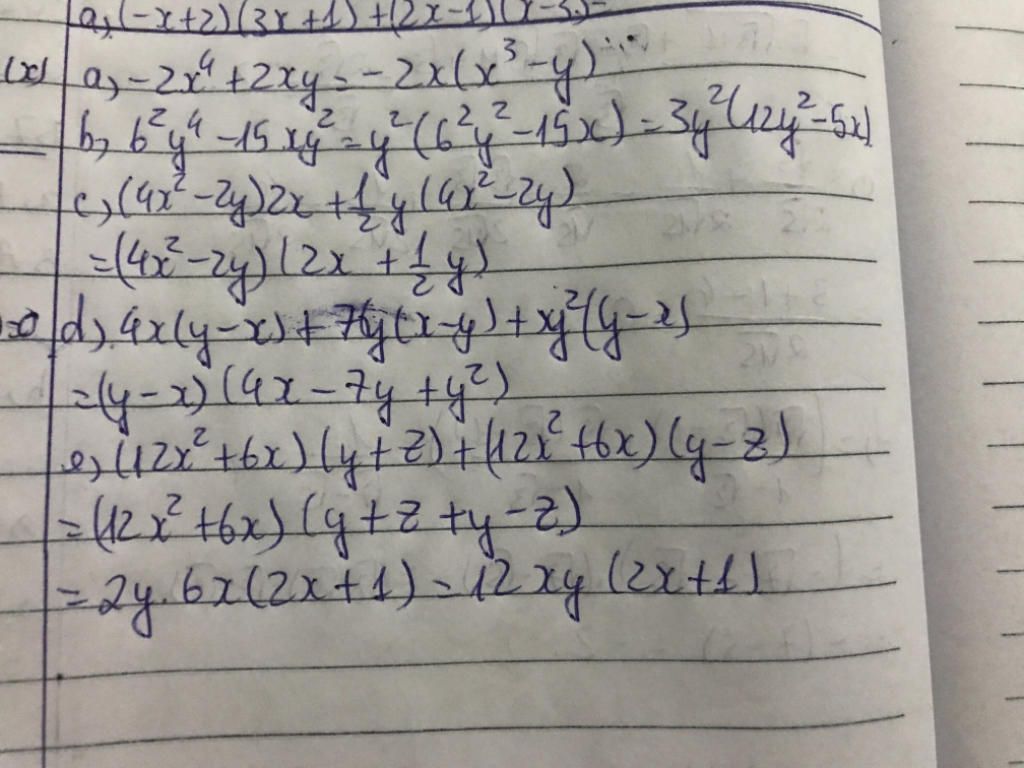 a, (-x+2)(3x+1)+(2x-1)(x-3)=
(x) a, -2x⁴ + 2xy = -2x(x³-y)
b, 6²y⁴ - 15xy² = y²(6²y² - 15x) = 3y²(12y² - 5x)
c, (4x² - 2y)2x + 1/2 y (4x² - 2y)
= (4x² - 2y)(2x + 1/2 y)
=0 d, 4x(y-x) + 7y(x-y) + xy²(y-x)
= (y-x)(4x - 7y + y²)
e, (12x² + 6x)(y+z) + (12x² + 6x)(y-z)
= (12x² + 6x)(y+z+y-z)
= 2y.6x(2x+1) = 12xy(2x+1)